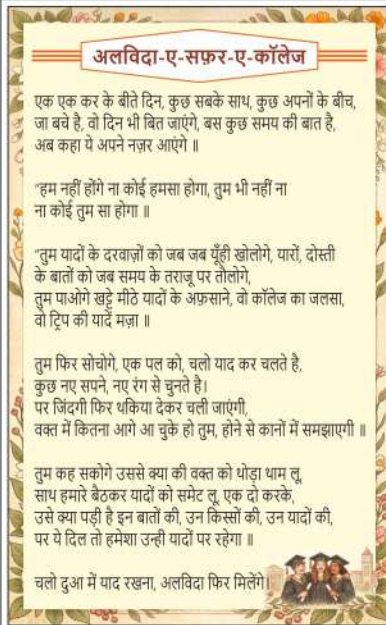 अलविदा-ए-सफ़र-ए-कॉलेज
एक एक कर के बीते दिन, कुछ सबके साथ, कुछ अपनों के बीच,
जा बचे है, वो दिन भी बित जाएंगे, बस कुछ समय की बात है,
अब कहा ये अपने नज़र आएंगे ॥
"हम नहीं होंगे ना कोई हमसा होगा, तुम भी नहीं ना
ना कोई तुम सा होगा ॥
"तुम यादों के दरवाज़ों को जब जब यूँही खोलोगे, यारों, दोस्ती
के बातों को जब समय के तराजू पर तौलोगे,
तुम पाओगे खट्टे मीठे यादों के अफ़साने, वो कॉलेज का जलसा,
वो ट्रिप की यादें मज़ा ॥
तुम फिर सोचोगे, एक पल को, चलो याद कर चलते है,
कुछ नए सपने, नए रंग से चुनते है।
पर जिंदगी फिर थकिया देकर चली जाएंगी,
वक्त में कितना आगे आ चुके हो तुम, होने से कानों में समझाएगी ॥
तुम कह सकोगे उससे क्या की वक्त को थोड़ा थाम लू,
साथ हमारे बैठकर यादों को समेट लू, एक दो करके,
उसे क्या पड़ी है इन बातों की, उन किस्सों की, उन यादों की,
पर ये दिल तो हमेशा उन्ही यादों पर रहेगा ॥
चलो दुआ में याद रखना, अलविदा फिर मिलेंगे।